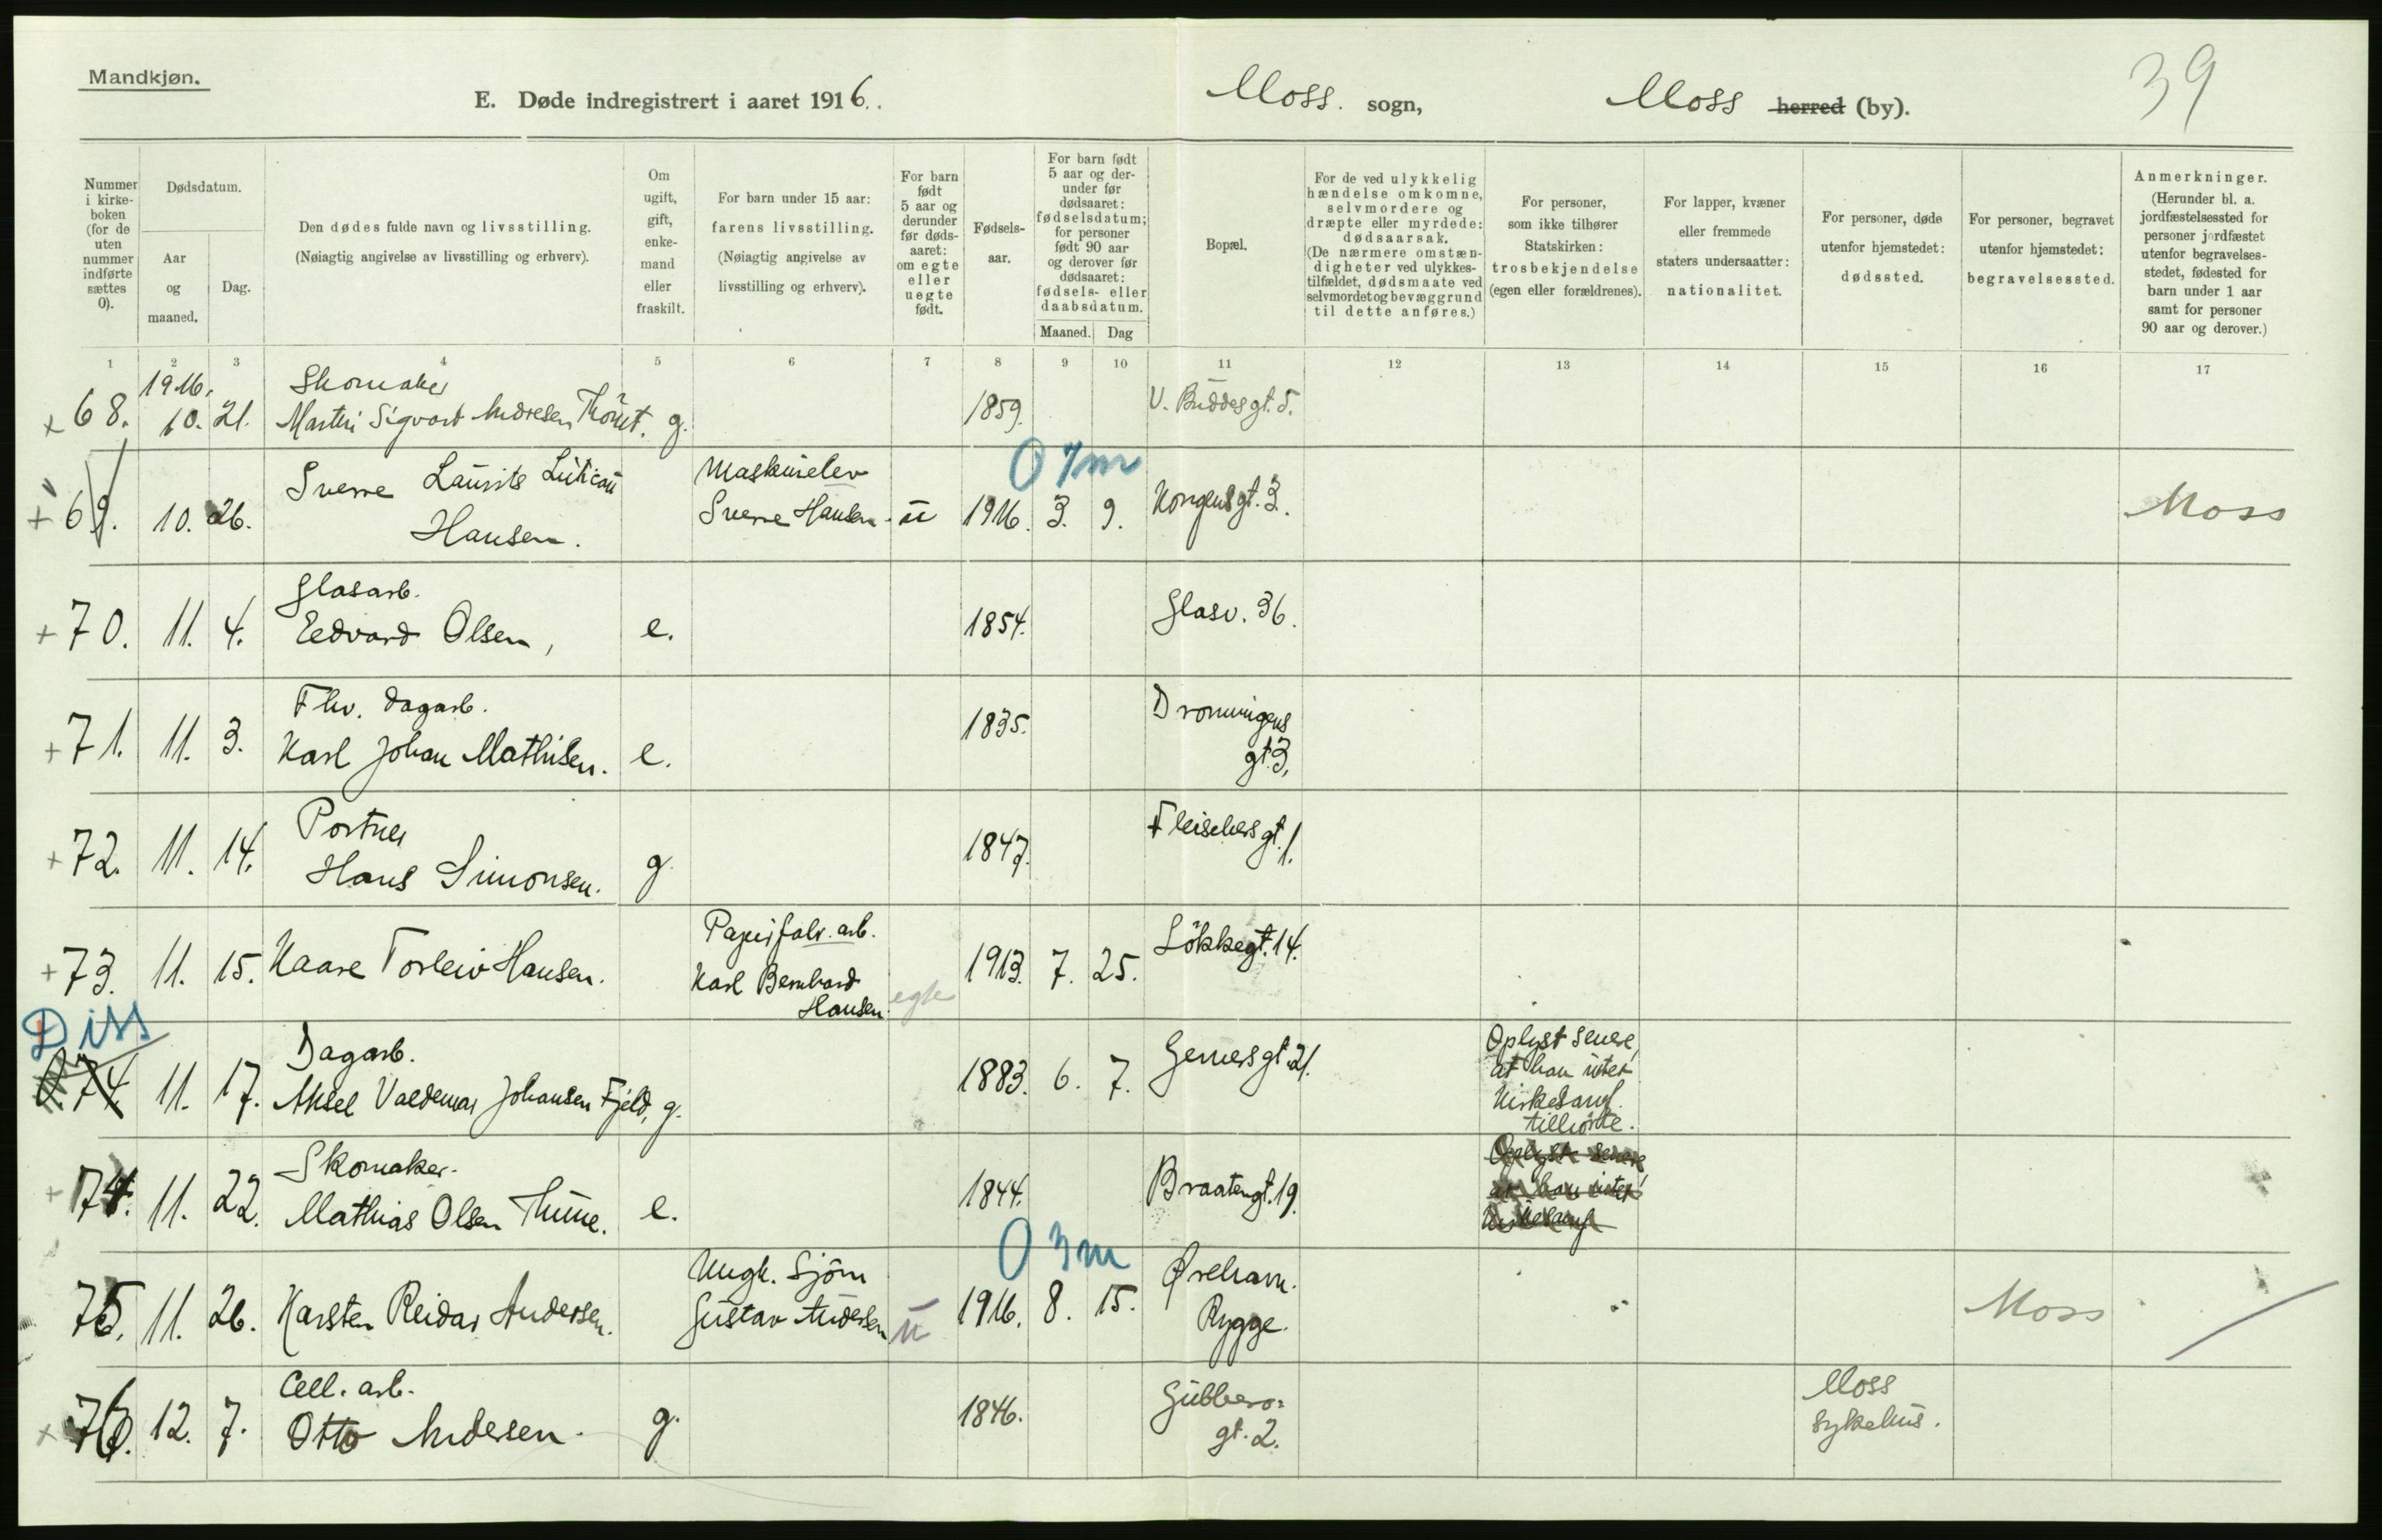 Mandkjøn.
E. Døde indregistrert i aaret 1916.
Moss. sogn,
Moss herred (by).
39
Nummer i kirkeboken (for de uten nummer indførte sættes 0).
Dødsdatum.
Aar og maaned.
Dag.
Den dødes fulde navn og livsstilling.
(Nøiagtig angivelse av livsstilling og erhverv).
Om ugift, gift, enkemand eller fraskilt.
For barn under 15 aar:
farens livsstilling.
(Nøiagtig angivelse av livsstilling og erhverv).
For barn født 5 aar og derunder før dødsaaret: om egte eller uegte født.
Fødselsaar.
For barn født 5 aar og derunder før dødsaaret: fødselsdatum; for personer født 90 aar og derover før dødsaaret: fødsels- eller daabsdatum.
Maaned. Dag
Bopæl.
For de ved ulykkelig hændelse omkomne, selvmordere og dræpte eller myrdede: dødsaarsak.
(De nærmere omstændigheter ved ulykkestilfældet, dødsmaate ved selvmordet og bevæggrund til dette anføres.)
For personer, som ikke tilhører Statskirken: trosbekjendelse (egen eller forældrenes).
For lapper, kvæner eller fremmede staters undersaatter: nationalitet.
For personer, døde utenfor hjemstedet: dødssted.
For personer, begravet utenfor hjemstedet: begravelsessted.
Anmerkninger.
(Herunder bl. a. jordfæstelsessted for personer jordfæstet utenfor begravelsesstedet, fødested for barn under 1 aar samt for personer 90 aar og derover.)
1 2 3 4 5 6 7 8 9 10 11 12 13 14 15 16 17
1916.
Skomaker
+ 68. 10. 21. Martin Sigvart Andresen g. 1859. V. Buddesgt. 5.
0 7m
Maskinelev
+ 69. 10. 26. Sverre Laurits Hansen. Sverre Hansen. u 1916. 3. 9. Kongensgt. 3. Moss
Glasarb.
+ 70. 11. 4. Eedvard Olsen, e. 1854. Glasv. 36.
Fhv. dagarb.
+ 71. 11. 3. Karl Johan Mathisen. e. 1835. Dronningens gt. 3,
Portner
+ 72. 11. 14. Hans Simonsen. g. 1847. Fleischersgt. 1.
Papirfabr. arb.
+ 73. 11. 15. Kaare Torleiv Hansen. Karl Bernhard Hansen. egte 1913. 7. 25. Løkkegt. 14.
Diss
Dagarb.
0. 74. 11. 17. Aksel Valdemar Johansen Fjeld, g. 1883. 6. 7. Gernersgt. 21.
Oplyst senere,
at han intet
Kirkesamf.
tilhørte.
Skomaker.
+ 74. 11. 22. Mathias Olsen Thune. e. 1844. Braatengt. 19.
Oplyst senere,
at han intet
Kirkesamf
0 3m
Ungk. Sjøm
75. 11. 26. Karsten Reidar Andersen. Gustav Andersen u 1916. 8. 15. Ørehavn. Rygge. Moss
Cell. arb.
+ 76. 12. 7. Otto Andersen. g. 1846. Gubbero- gt. 2. Moss Sykehus.